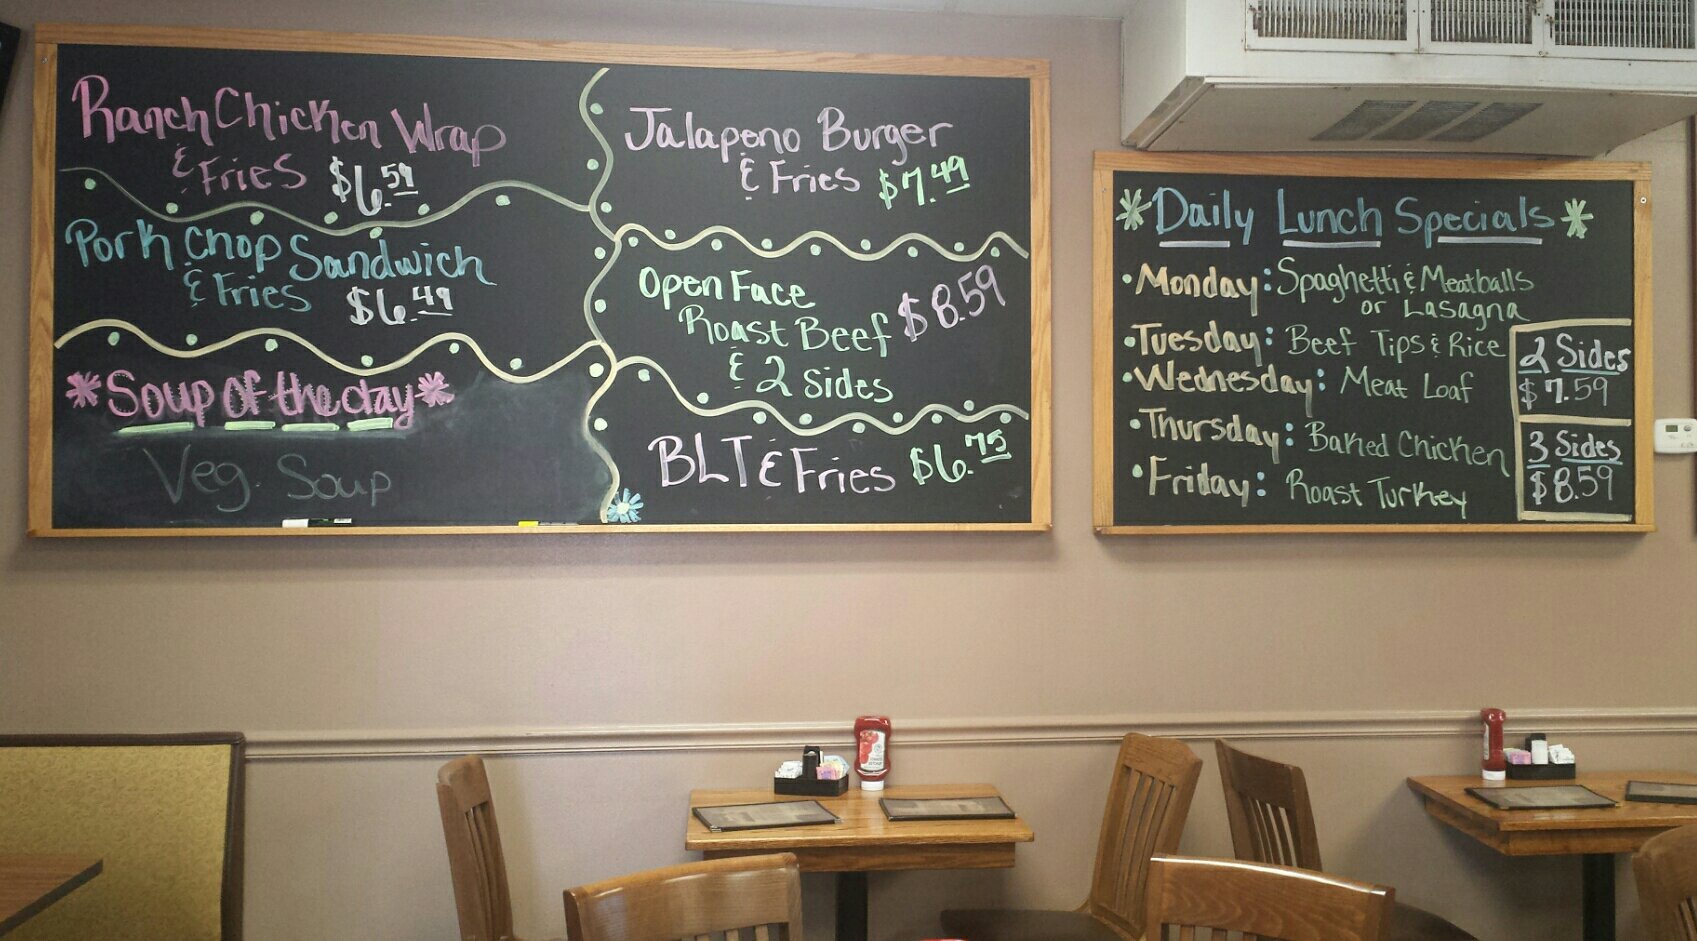 Ranch Chicken Wrap
& Fries $6.59
Pork Chop Sandwich
& Fries $6.49
*Soup of the day*
Veg. Soup
Jalapeno Burger
& Fries $7.49
Open Face
Roast Beef $8.59
& 2 Sides
BLT & Fries $6.75
*Daily Lunch Specials*
• Monday: Spaghetti & Meatballs
or Lasagna
• Tuesday: Beef Tips & Rice
• Wednesday: Meat Loaf
• Thursday: Baked Chicken
• Friday: Roast Turkey
2 Sides
$7.59
3 Sides
$8.59